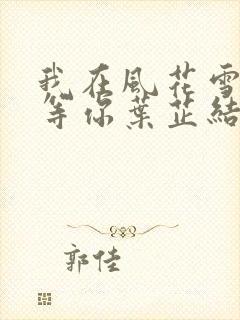 我在風花雪
等你葉芷結
郭佳